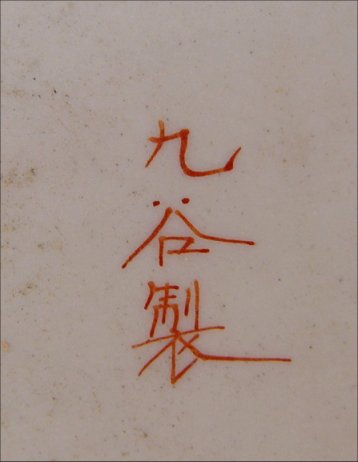 九谷製